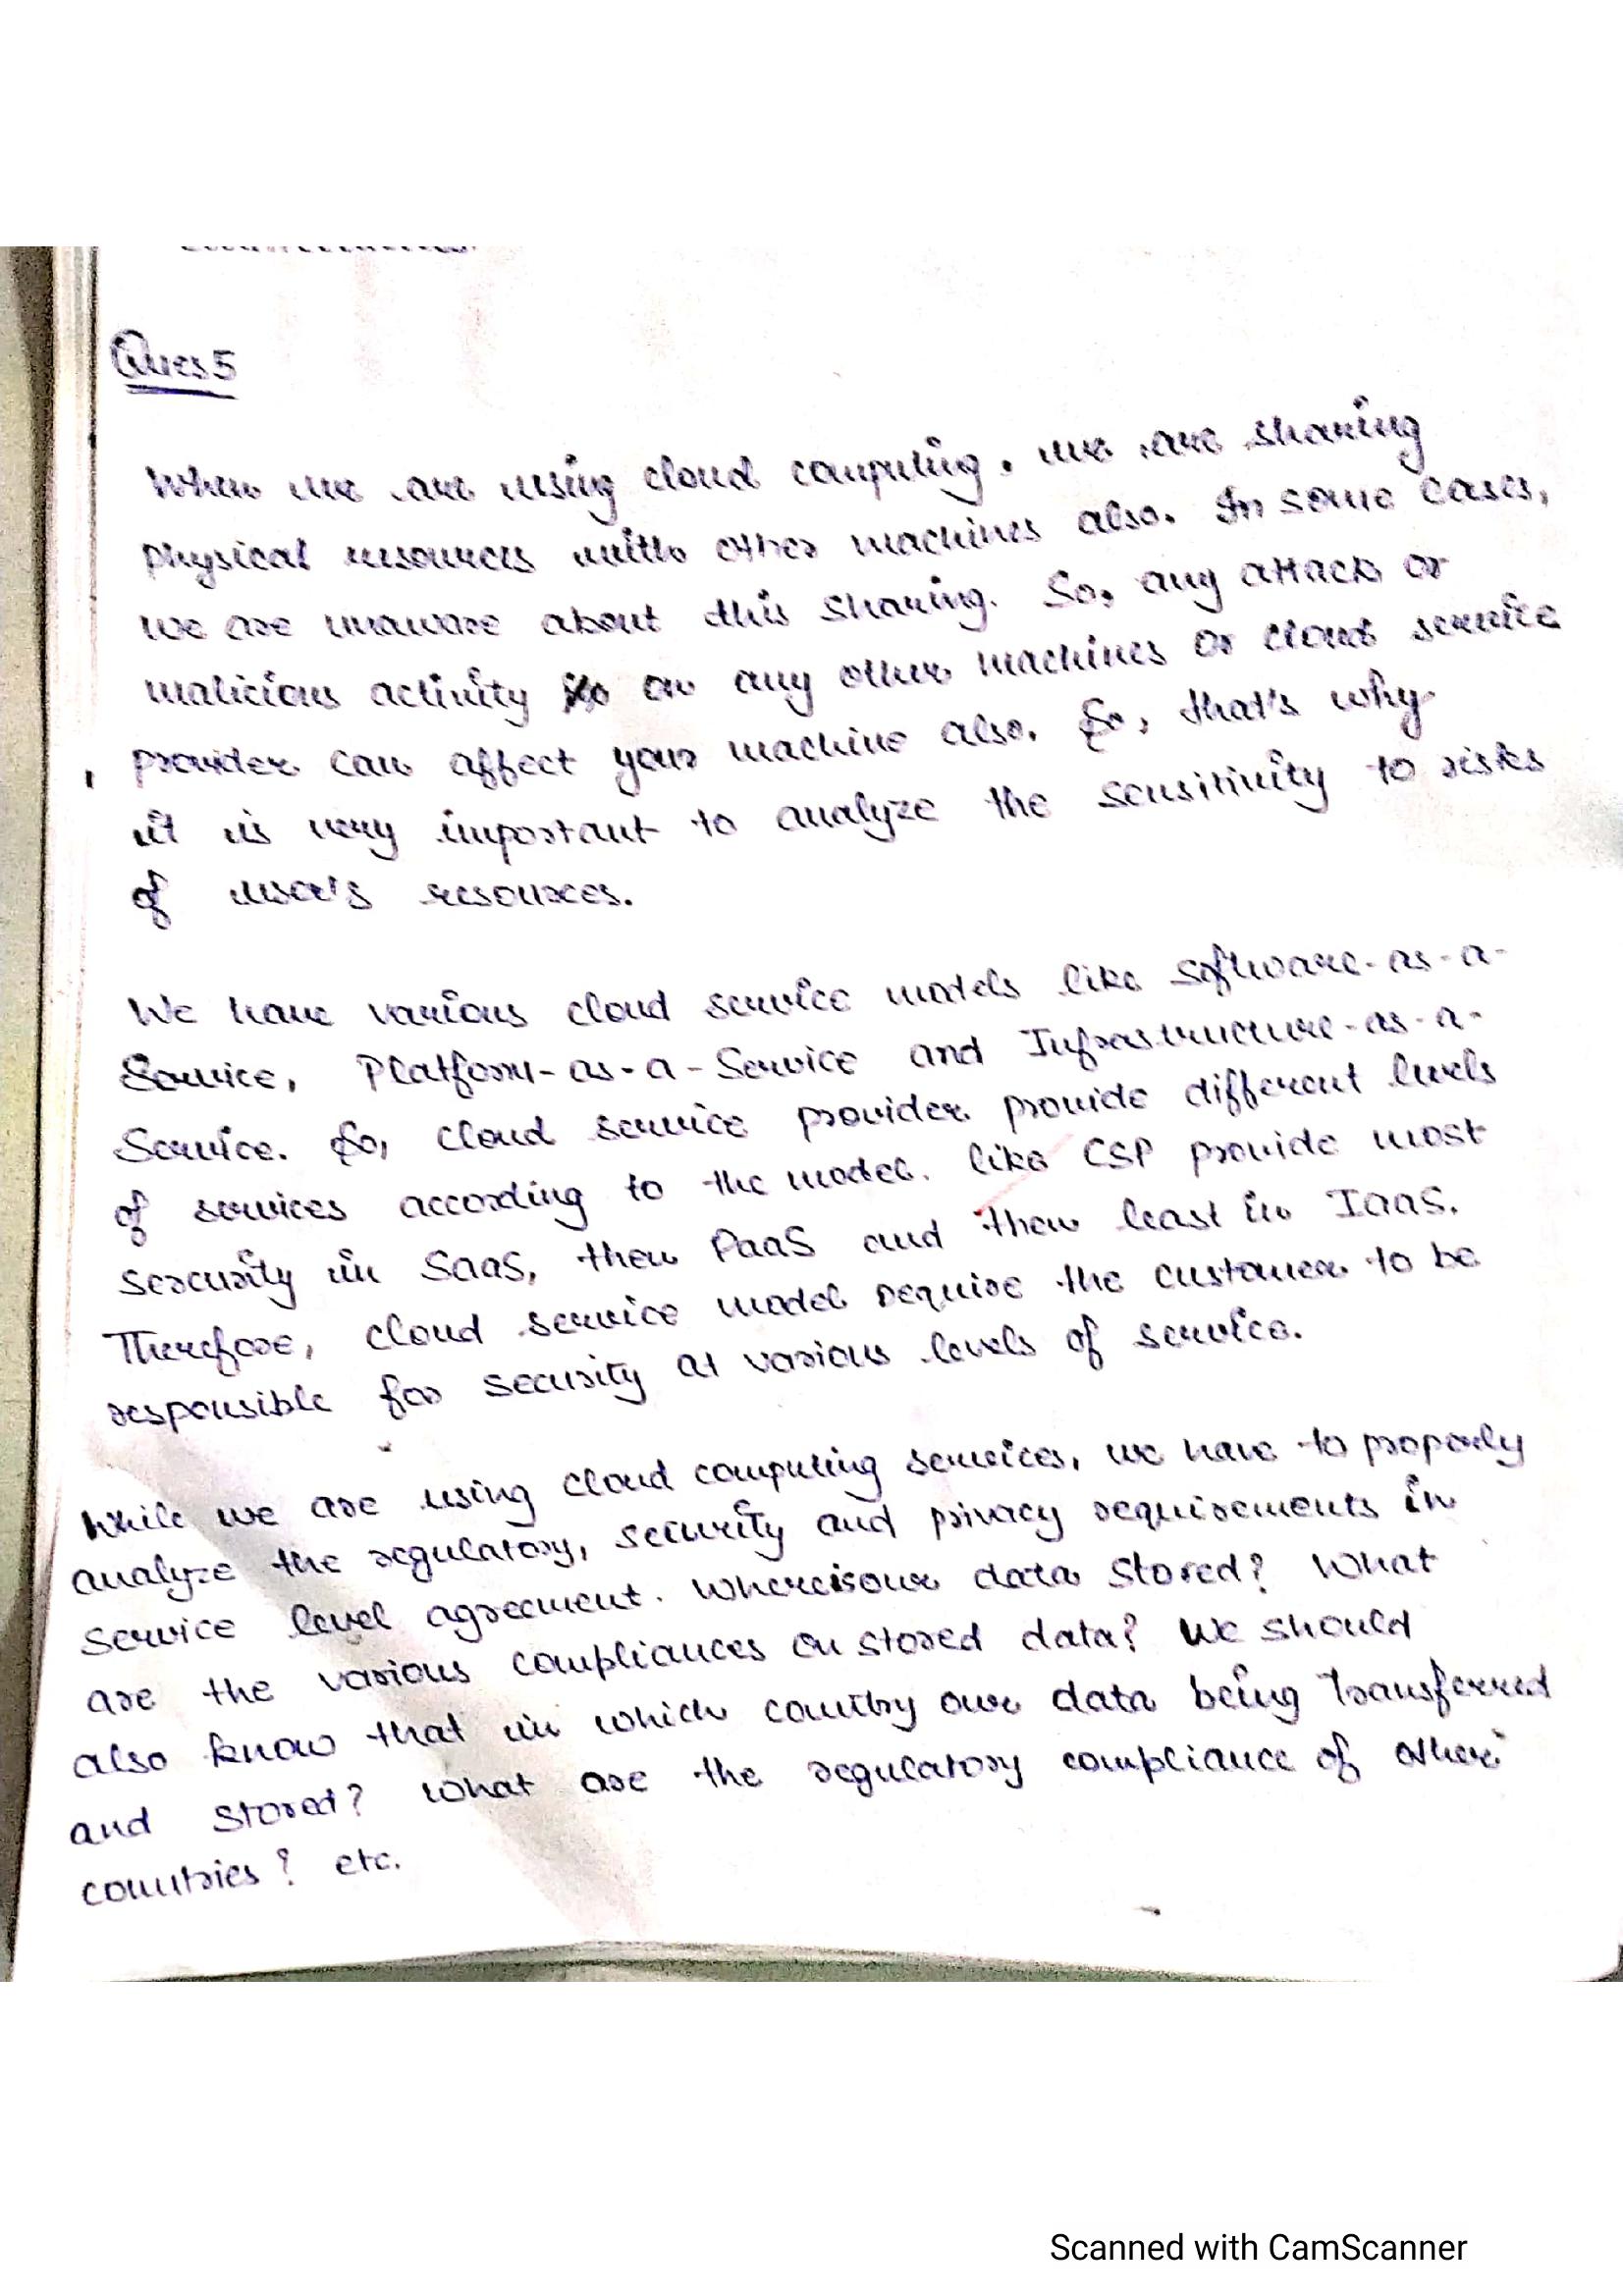 Ques 5
When we are using cloud computing. we are sharing
physical resources with other machines also. In some cases,
we are unaware about this sharing. So, any attack or
malicious activity on any other machines or cloud service
provider can affect your machine also. So, that's why
it is very important to analyze the sensitivity to risks
of user's resources.
We have various cloud service models like Software-as-a-
Service, Platform-as-a-Service and Infrastructure-as-a-
Service. So, cloud service provider provide different levels
of services according to the model. like CSP provide most
sercurity in SaaS, then PaaS and then least in IaaS.
Therefore, cloud service model require the customer to be
responsible for security at various levels of service.
While we are using cloud computing services, we have to properly
analyze the regulatory, security and privacy requirements in
service level agreement. Where is our data stored? What
are the various compliances on stored data? We should
also know that in which country our data being transferred
and stored? What are the regulatory compliance of other
countries? etc.
Scanned with CamScanner